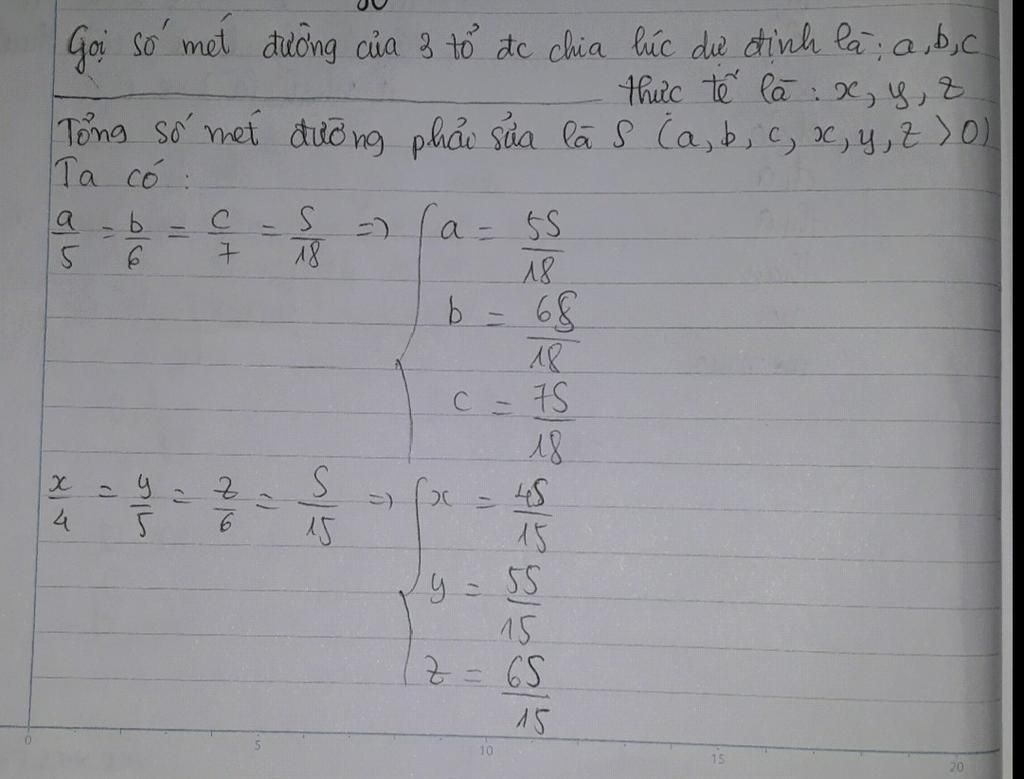 Gọi số mét đường của 3 tổ đc chia lúc dự định là: a, b, c
thực tế là: x, y, z
Tổng số mét đường phải sửa là S (a, b, c, x, y, z > 0)
Ta có:
a/5 = b/6 = c/7 = S/18 => { a = 5S/18
b = 6S/18
c = 7S/18
x/4 = y/5 = z/6 = S/15 => { x = 4S/15
y = 5S/15
z = 6S/15
0 5 10 15 20